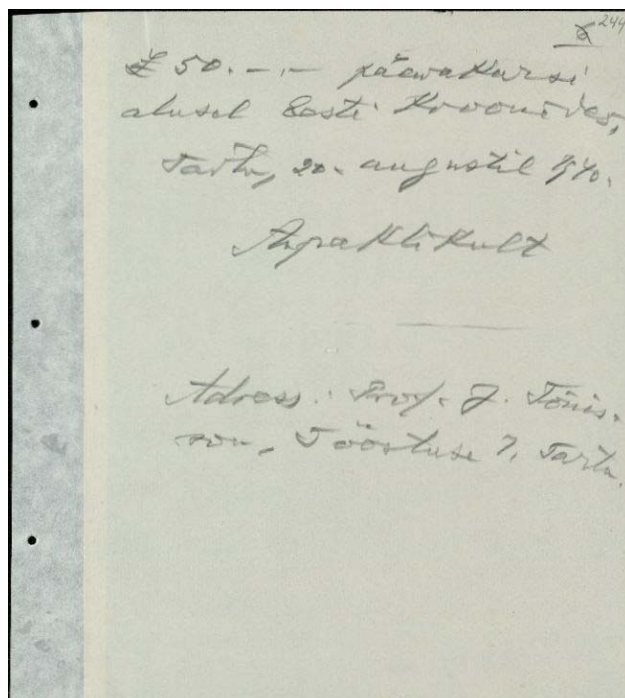 6 244
£ 50.-.- päewakursi
alusel Eesti Kroonides,
Tartu, 20. augustil 1940.
Aupaklikult
Adress: Prof. J. Tõnis-
son, Tööstuse 7, Tartu.